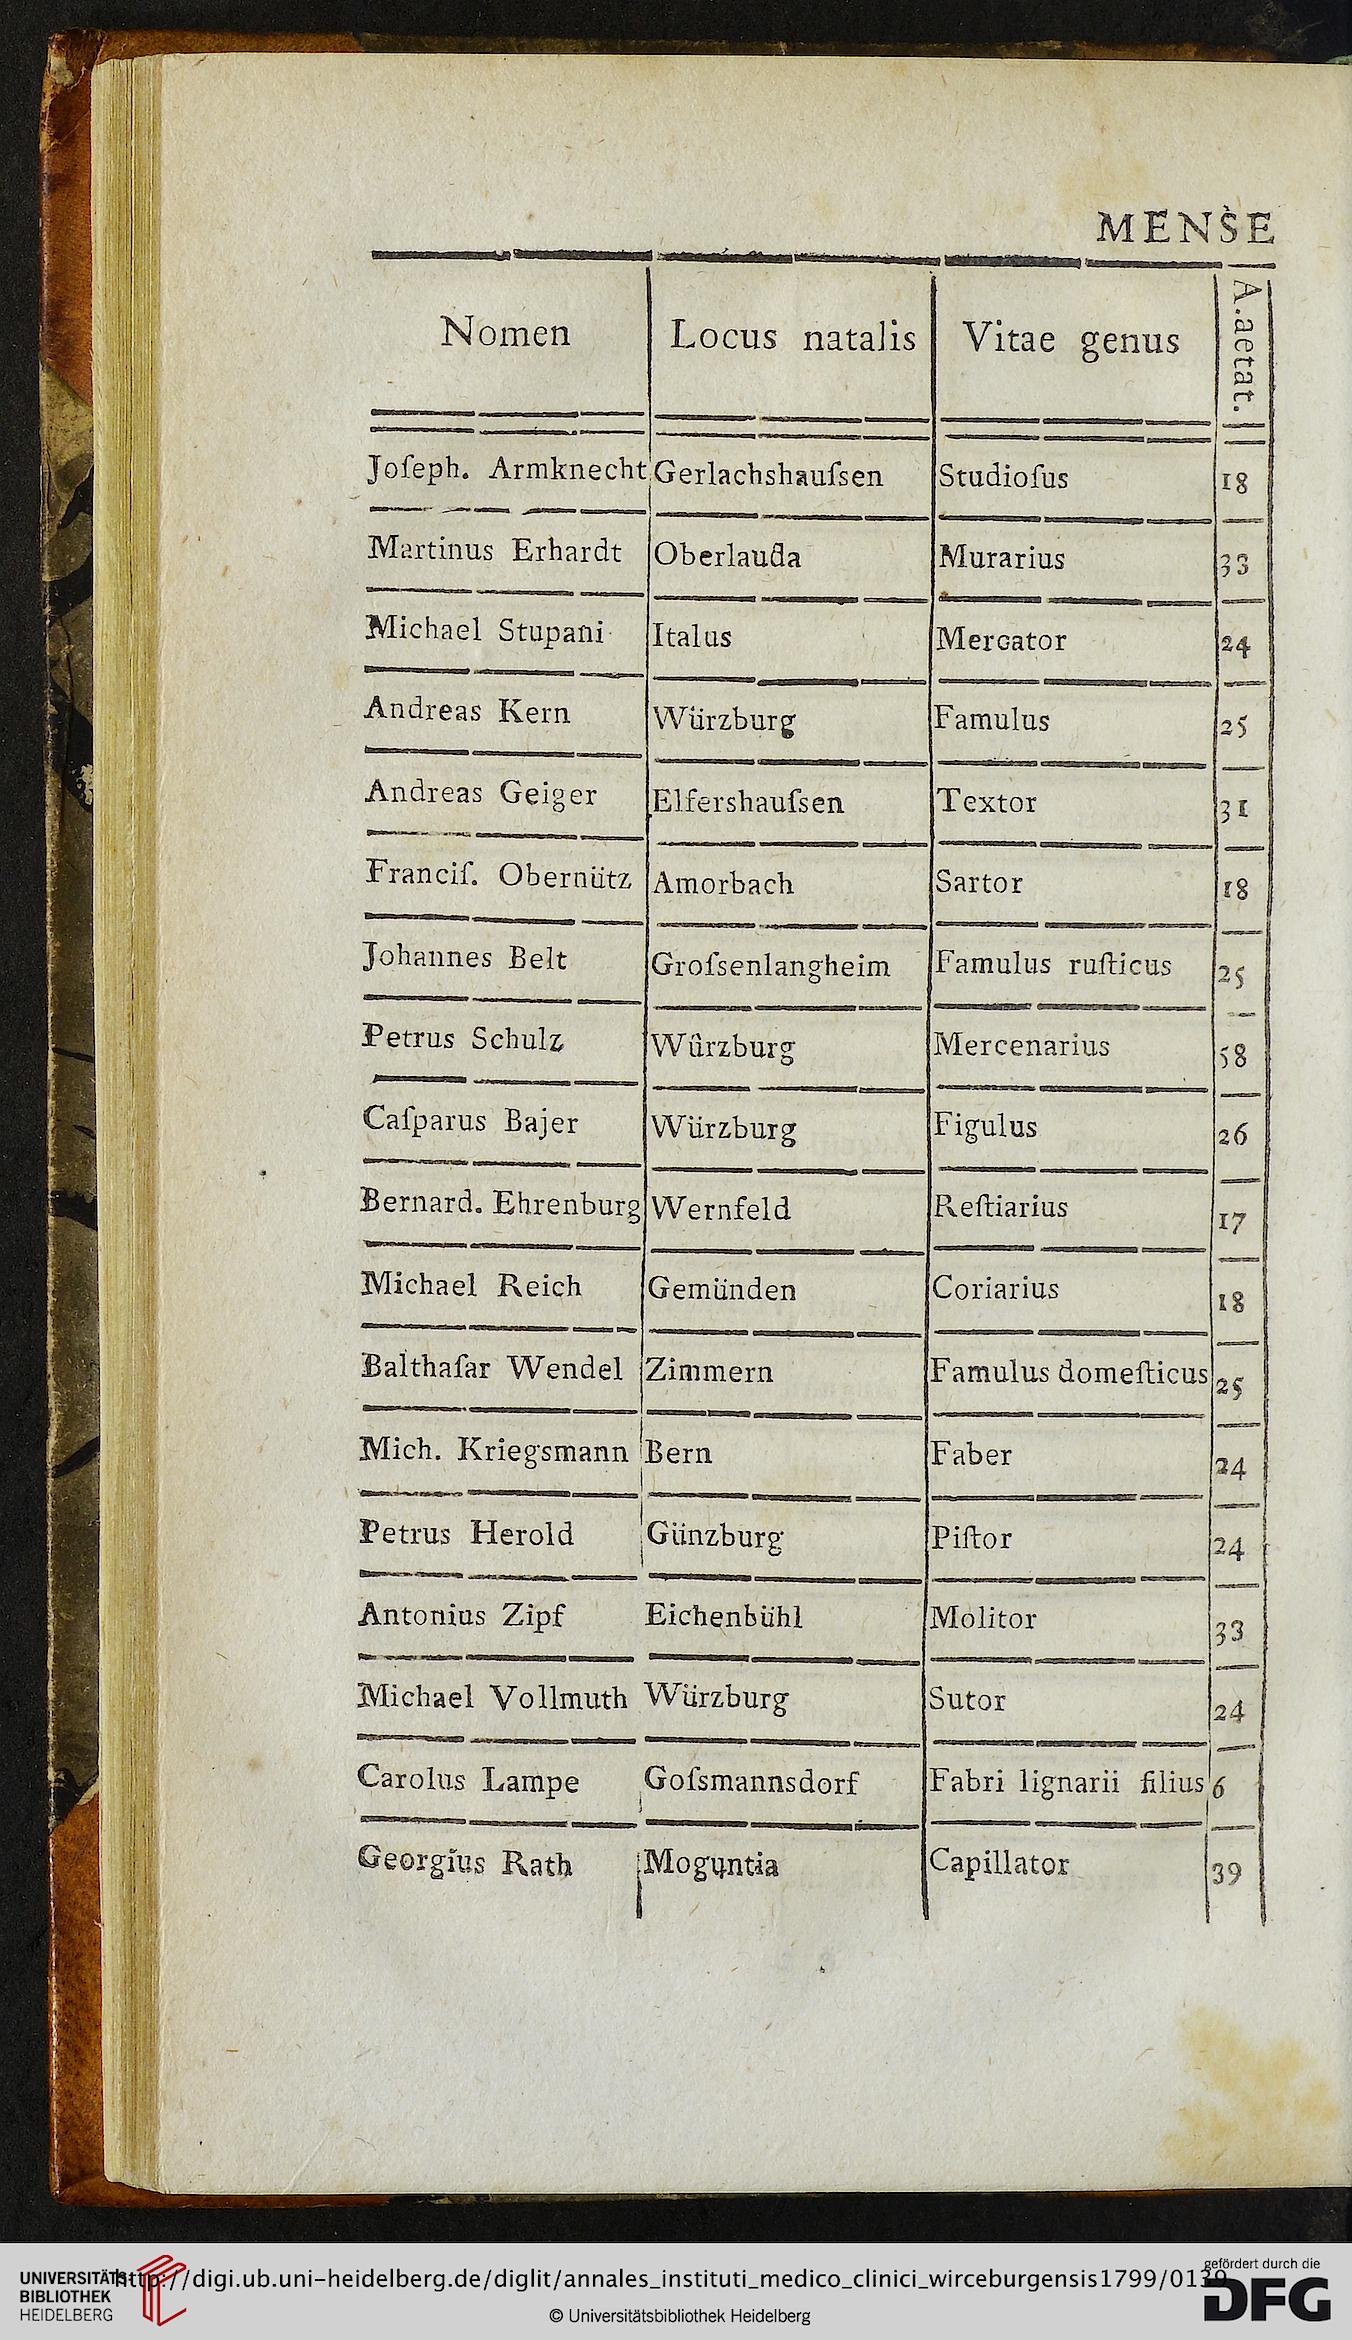 MENSE
Nomen Locus natalis Vitae genus A. aetat.
Joſeph. Armknecht Gerlachshauſsen Studioſus 18
Martinus Erhardt Oberlauda Murarius 33
Michael Stupani Italus Mercator 24
Andreas Kern Würzburg Famulus 25
Andreas Geiger Elfershauſsen Textor 31
Franciſ. Obernütz Amorbach Sartor 18
Johannes Belt Groſsenlangheim Famulus ruſticus 25
Petrus Schulz Würzburg Mercenarius 58
Caſparus Bajer Würzburg Figulus 26
Bernard. Ehrenburg Wernfeld Reſtiarius 17
Michael Reich Gemünden Coriarius 18
Balthaſar Wendel Zimmern Famulus domeſticus 25
Mich. Kriegsmann Bern Faber 24
Petrus Herold Günzburg Piſtor 24
Antonius Zipf Eichenbühl Molitor 33
Michael Vollmuth Würzburg Sutor 24
Carolus Lampe Goſsmannsdorf Fabri lignarii filius 6
Georgius Rath Moguntia Capillator 39
UNIVERSITÄTS-
BIBLIOTHEK
HEIDELBERG
http://digi.ub.uni-heidelberg.de/diglit/annales_instituti_medico_clinici_wirceburgensis1799/0139
© Universitätsbibliothek Heidelberg
gefördert durch die
DFG